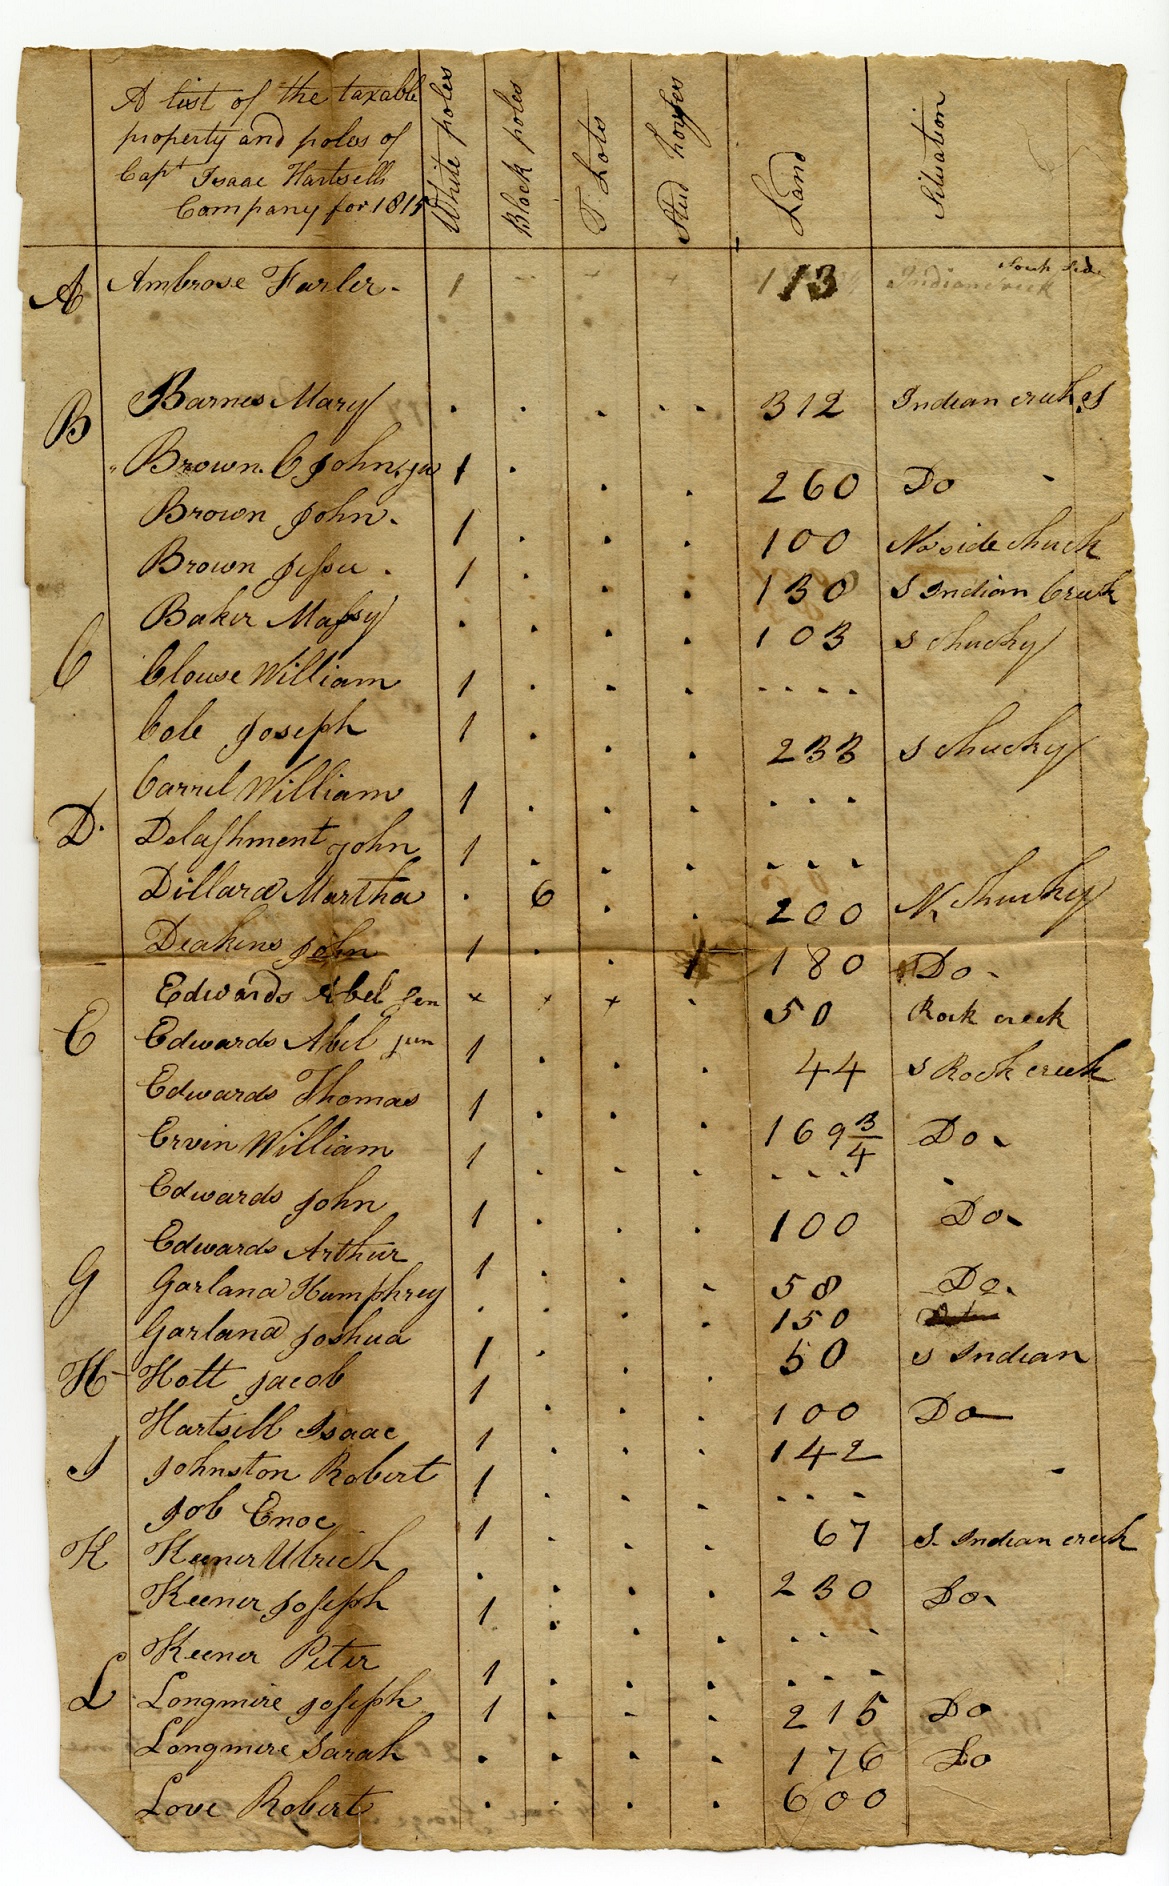 A list of the taxable
property and poles of
Capt Isaac Hartsells
Company for 1815
White poles
Black poles
T Lots
Stud horses
Land
Situation
A Ambrose Farler - 1 - - + 113 Indian creek South Side
B Barnes Mary . . . . . 312 Indian creek S
Brown. C John. jur 1 . . . 260 Do -
Brown John - 1 . . . 100 No side Chuck
Brown Jesse . 1 . . . 130 S Indian Creek
Baker Massy . . . . 103 S Chucky
C Clouse William 1 . . . - - - -
Cole Joseph 1 . . . 233 S Chucky
Carrel William 1 . . . - - -
D. Delashment John 1 . . . - - -
Dillard Martha . 6 . . 200 N. Chuckey
Deakins John 1 . . 1 180 Do -
Edwards Abel Sen x x x . 50 Rock creek
E Edwards Abel jun 1 . . . 44 S Rock creek
Edwards Thomas 1 . . . 169 3/4 Do -
Ervin William 1 . . . - - - -
Edwards John 1 . . . 100 Do -
Edwards Arthur 1 . . . 58 Do.
G Garland Humphrey . . . . 150
Garland Joshua 1 . . . 50 S Indian
H Hott Jacob 1 . . . 100 Do
Hartsell Isaac 1 . . . 142
J Johnston Robert 1 . . . - - - -
Job Enoc 1 . . . 67 S. Indian creek
K Keener Ulrich . . . . 230 Do -
Keener Joseph 1 . . . - - - -
Keener Peter 1 . . . - - - -
L Longmire Joseph 1 . . . 215 Do
Longmire Sarah . . . . 176 Do
Love Robert . . . . 600